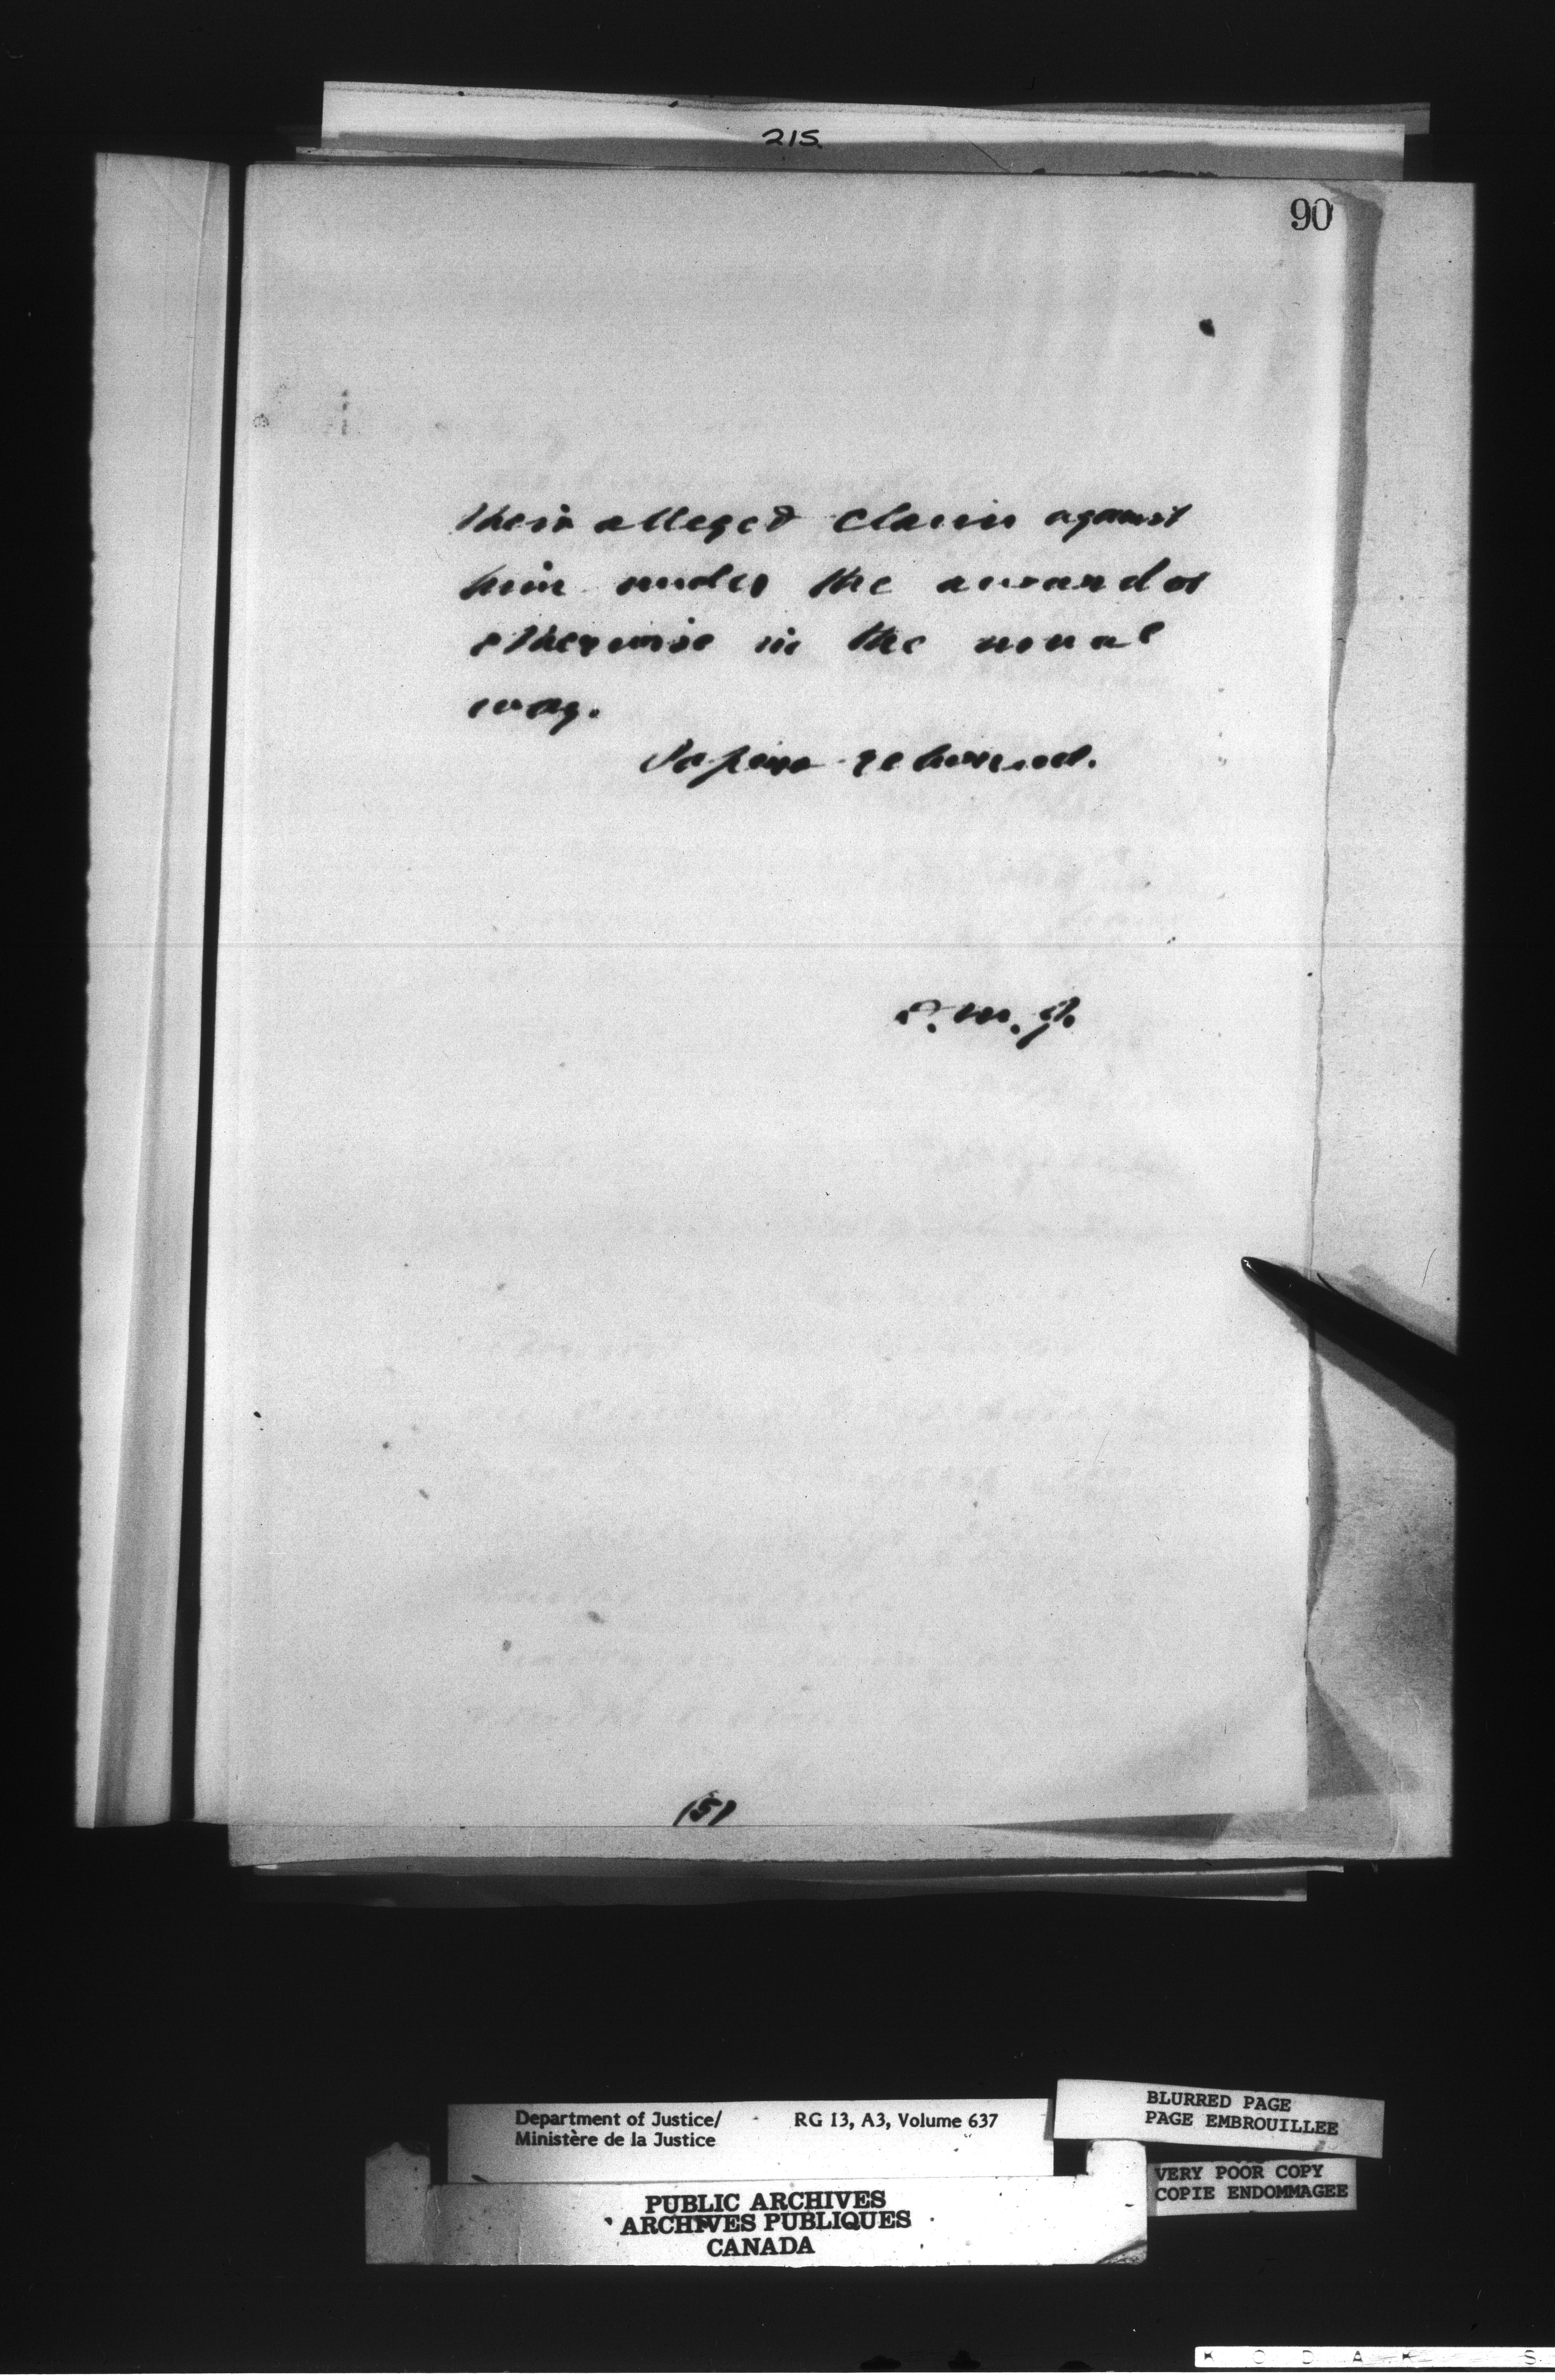 215.
90
their alleged claim against
him under the award or
otherwise in the usual
way.
Papers returned.
(5)
Department of Justice/ RG 13, A3, Volume 637
Ministère de la Justice
BLURRED PAGE
PAGE EMBROUILLEE
VERY POOR COPY
COPIE ENDOMMAGEE
PUBLIC ARCHIVES
ARCHIVES PUBLIQUES
CANADA
K O D A K S